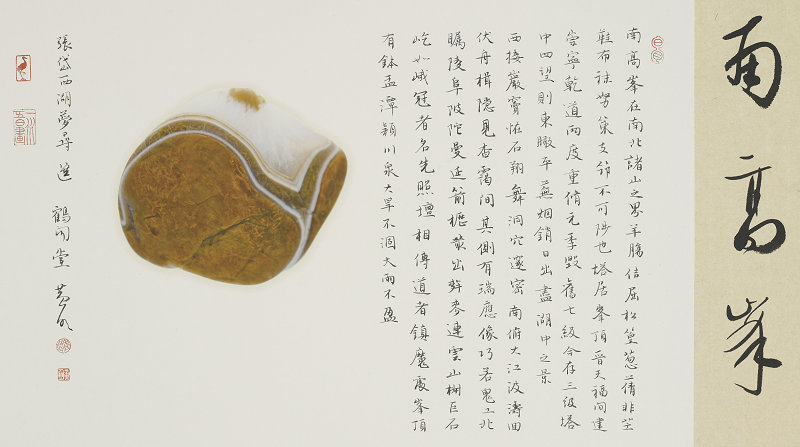 南高峯
南高峯在南北諸山之界羊腸佶屈松篁葱蒨非芒
鞋布襪努策支筇不可陟也塔居峯頂晉天福間建
崇寧乾道兩度重脩元季毀舊七級今存三級塔
中四望則東瞰平蕪烟銷日出盡湖中之景
西接巖竇怪石翔舞洞穴邃密南俯大江波濤回
伏舟楫隱見杳靄間其側有瑞應像巧若鬼工北
矚陵阜陂陀曼延箭櫪叢出麰麥連雲山樹巨石
屹如峨冠者名先照壇相傳道者鎮魔處峯頂
有鉢盂潭潁川泉大旱不涸大雨不盈
張岱西湖夢尋選 鶴閒堂